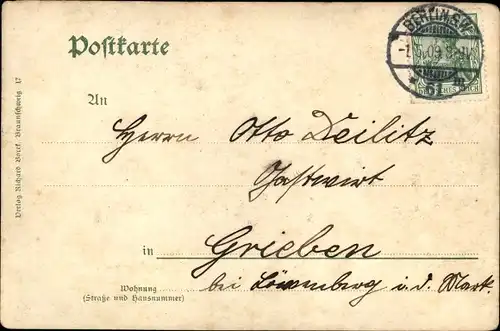 Postkarte
BERLIN S.W.
61
An
Herrn Otto Deilitz
Gastwirt
in Grieben
bei Löwenberg i. d. Mark.
Wohnung
(Straße und Hausnummer)
Verlag Richard Borek, Braunschweig 17